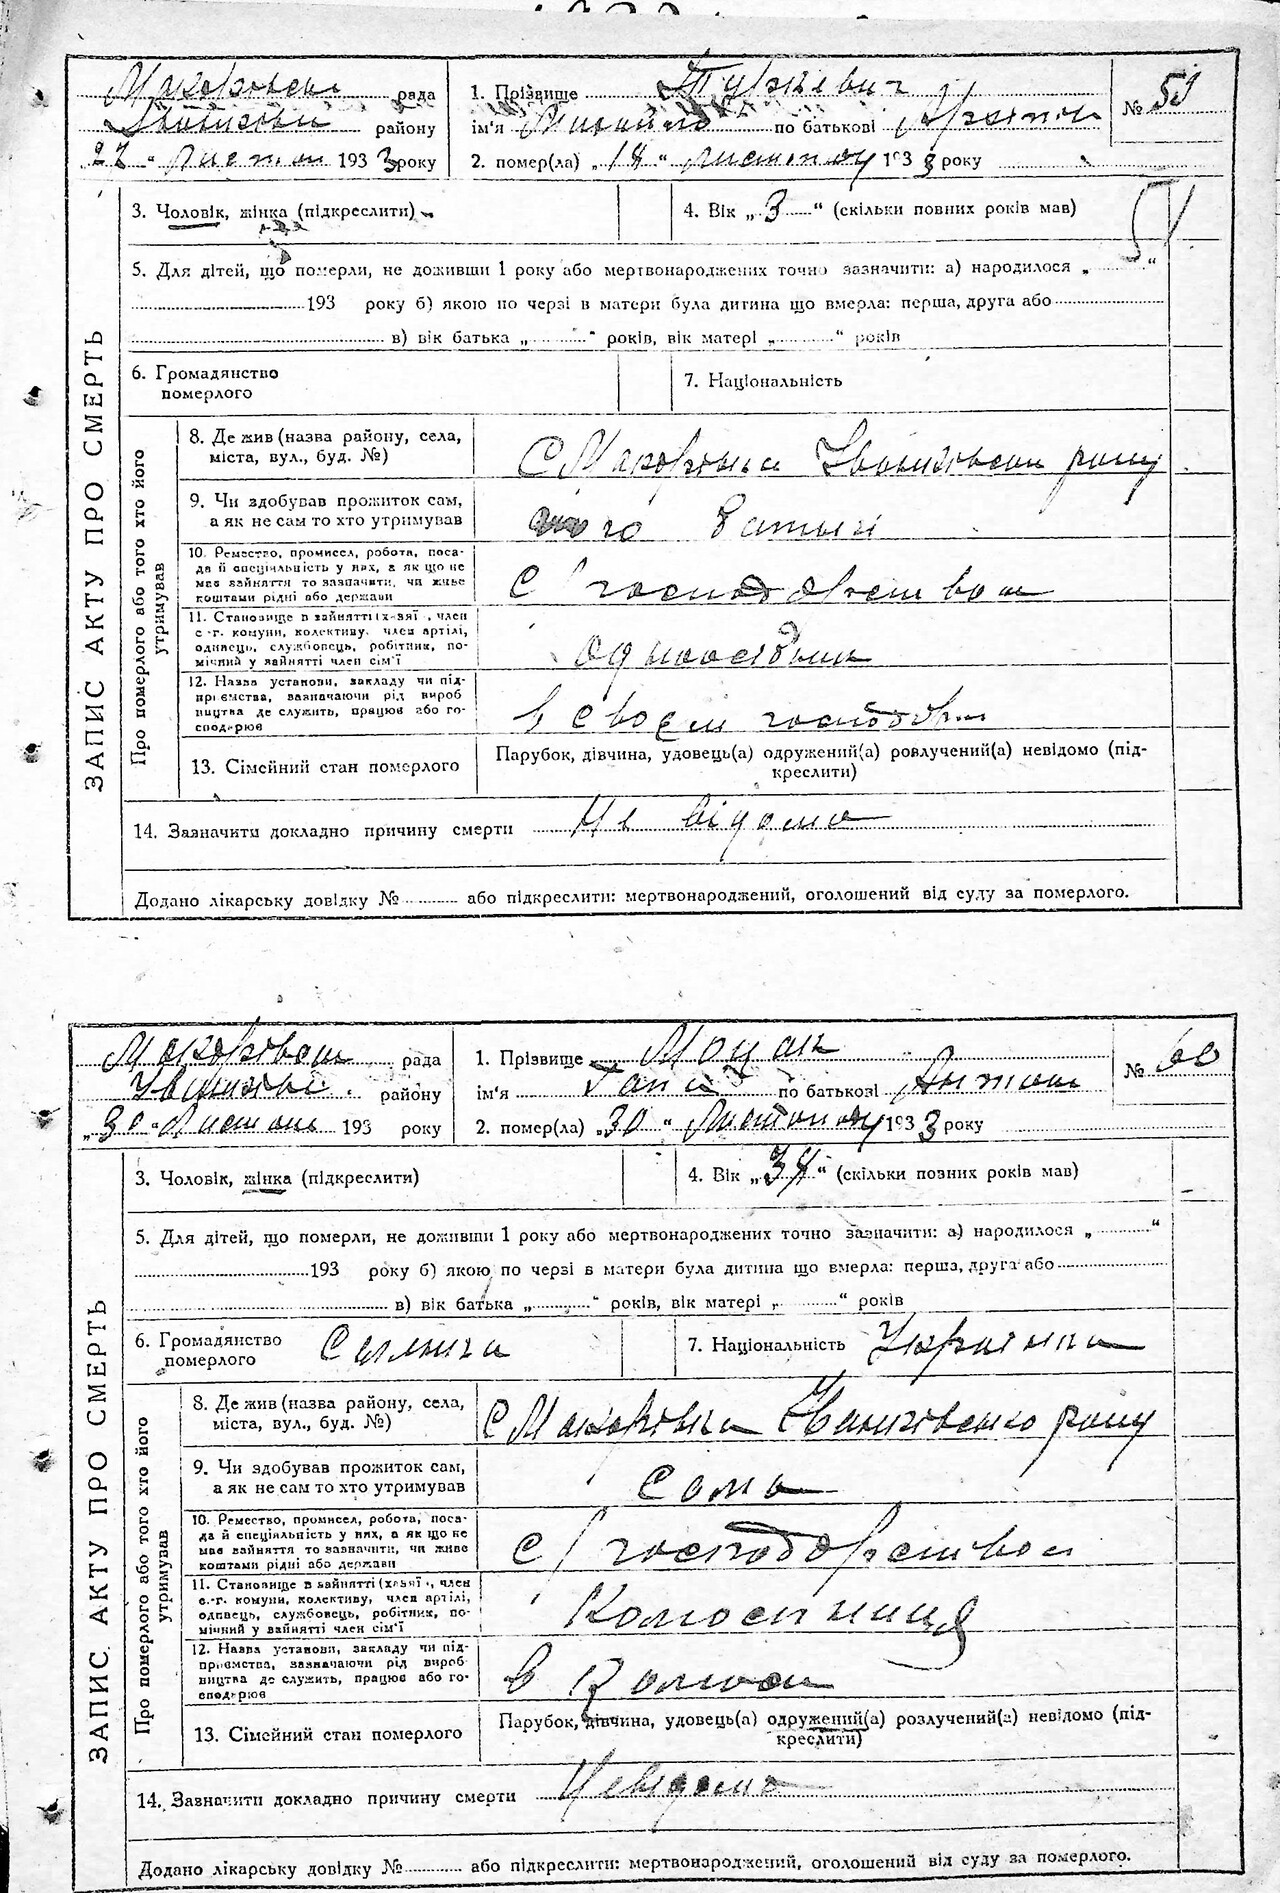 рада
району
193 3 року
1. Прізвище Туркевич
ім'я Михайло по батькові
2. помер(ла) „ 18 “ листопаду 193 3 року
№
51
3. Чоловік, жінка (підкреслити)
4. Вік „ 3 “ (скільки повних років мав)
5. Для дітей, що померли, не доживши 1 року або мертвонароджених точно зазначити: а) народилося „ “
193 року б) якою по черзі в матери була дитина що вмерла: перша, друга або
в) вік батька „ “ років, вік матері „ “ років
6. Громадянство
померлого
7. Національність
ЗАПИС АКТУ ПРО СМЕРТЬ
Про померлого або того хто його
утримував
8. Де жив (назва району, села,
міста, вул., буд. №)
С Макорівка
9. Чи здобував прожиток сам,
а як не сам то хто утримував
його батьки
10. Ремество, промисел, робота, поса-
да й спеціяльність у них, а як що не
мав зайняття то зазначити, чи живе
коштами рідні або держави
С господарством
11. Становище в зайнятті (х-зяї , член
с.-г. комуни, колективу, член артілі,
одинець, службовець, робітник, по-
мічний у зайнятті член сім'ї
12. Назва установи, закладу чи під-
приємства, зазначаючи рід вироб
ництва де служить, працює або го-
сподарює
в своєм господар
13. Сімейний стан померлого
Парубок, дівчина, удовець(а) одружений(а) розлучений(а) невідомо (під-
креслити)
14. Зазначити докладно причину смерти Не відома
Додано лікарську довідку № або підкреслити: мертвонароджений, оголошений від суду за померлого.
рада
району
„ 30 “ 193 року
1. Прізвище Моцак
ім'я Ганна по батькові Антон
2. помер(ла) „ 30 “ листопаду 193 3 року
№ 60
3. Чоловік, жінка (підкреслити)
4. Вік „ 38 “ (скільки повних років мав)
5. Для дітей, що померли, не доживши 1 року або мертвонароджених точно зазначити: а) народилося „ “
193 року б) якою по черзі в матери була дитина що вмерла: перша, друга або
в) вік батька „ “ років, вік матері „ “ років
6. Громадянство
померлого
7. Національність Українка
ЗАПИС АКТУ ПРО СМЕРТЬ
Про померлого або того хто його
утримував
8. Де жив (назва району, села,
міста, вул., буд. №)
С Макорівка
9. Чи здобував прожиток сам,
а як не сам то хто утримував
Сама
10. Ремество, промисел, робота, поса-
да й спеціяльність у них, а як що не
мав зайняття то зазначити, чи живе
коштами рідні або держави
С господарством
11. Становище в зайнятті (хазяї , член
с.-г. комуни, колективу, член артілі,
одинець, службовець, робітник, по-
мічний у зайнятті член сім'ї
Колгоспниця
12. Назва установи, закладу чи під-
приємства, зазначаючи рід вироб
ництва де служить, працює або го-
сподарює
в Колгосп
13. Сімейний стан померлого
Парубок, дівчина, удовець(а) одружений(а) розлучений(а) невідомо (під-
креслити)
14. Зазначити докладно причину смерти Невідома
Додано лікарську довідку № або підкреслити: мертвонароджений, оголошений від суду за померлого.